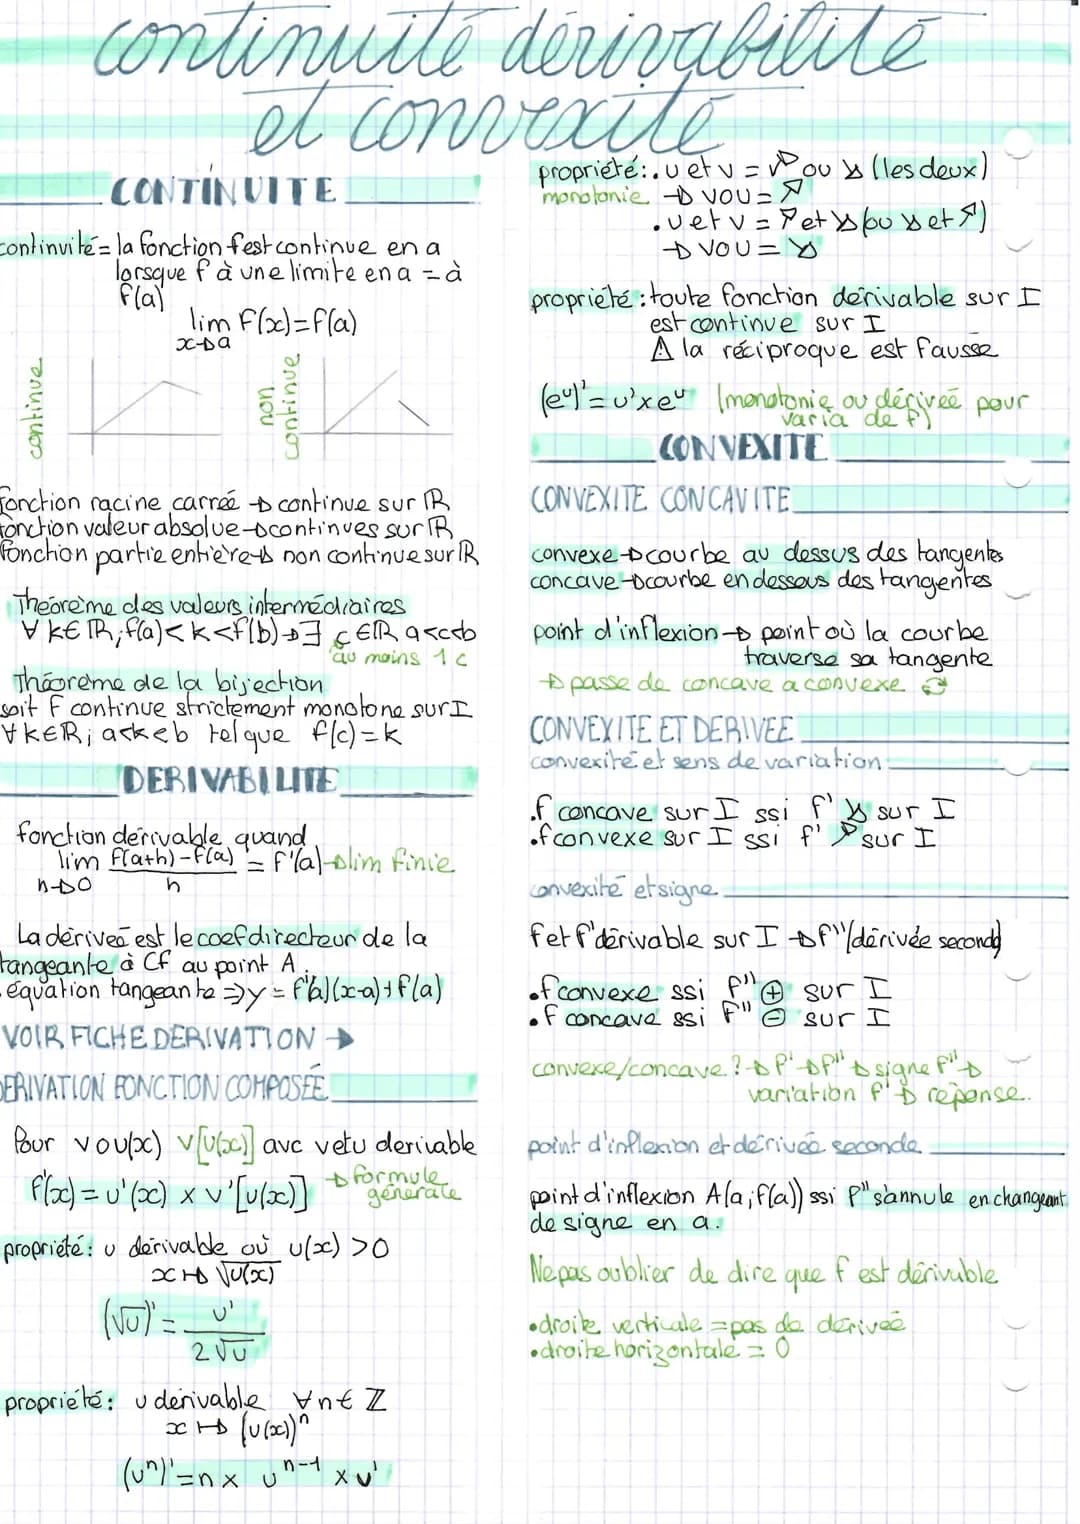 continuité dérivabilité
et convexité
CONTINUITE
continuité = la fonction f est continue en a
lorsque f à une limite en a = à
f(a)
lim f(x)=f(a)
x→a
continue
non
continue
fonction racine carrée → continue sur ℝ
fonction valeur absolue → continues sur ℝ
fonction partie entière → non continue sur ℝ
Théorème des valeurs intermédiaires
∀ k∈ℝ, f(a)<k<f(b) → ∃ c∈ℝ a<c<b
au moins 1 c
Théorème de la bijection
soit f continue strictement monotone sur I
∀k∈ℝ; a<k<b tel que f(c)=k
DERIVABILITE
fonction dérivable quand
lim f(a+h)-f(a) = f'(a) → lim finie
h→0 h
La dérivée est le coef directeur de la
tangeante à Cf au point A.
équation tangeante ⇒ y = f'(a)(x-a)+f(a)
VOIR FICHE DERIVATION →
DERIVATION FONCTION COMPOSÉE
Pour vou(x) v[u(x)] avc vetu derivable
f'(x) = u'(x) x v'[u(x)] → formule
générale
propriété: u dérivable où u(x) >0
x ↦ √u(x)
(√u)' = u'
2√u
propriété: u dérivable ∀n∈ ℤ
x ↦ (u(x))ⁿ
(uⁿ)' = n x uⁿ⁻¹ x u'
propriété: . u et v = ↗ ou ↘ (les deux)
monotonie → vou = ↗
. u et v = ↗ et ↘ (ou ↘ et ↗)
→ vou = ↘
propriété : toute fonction dérivable sur I
est continue sur I
⚠ la réciproque est fausse
(eᵘ)' = u' x eᵘ (monotonie ou dérivée pour
varia de f)
CONVEXITE
CONVEXITE CONCAVITE
convexe → courbe au dessus des tangentes
concave → courbe en dessous des tangentes
point d'inflexion → point où la courbe
traverse sa tangente
→ passe de concave a convexe
CONVEXITE ET DERIVEE
convexité et sens de variation
.f concave sur I ssi f' ↘ sur I
.f convexe sur I ssi f' ↗ sur I
convexité et signe
f et f' dérivable sur I → f'' (dérivée seconde)
•f convexe ssi f'' ⊕ sur I
•f concave ssi f'' ⊖ sur I
convexe/concave ? → f' → f'' → signe f'' →
variation f' → réponse.
point d'inflexion et dérivée seconde
point d'inflexion A(a;f(a)) ssi f'' s'annule en changeant
de signe en a.
Ne pas oublier de dire que f est dérivable
•droite verticale = pas de dérivée
•droite horizontale = 0